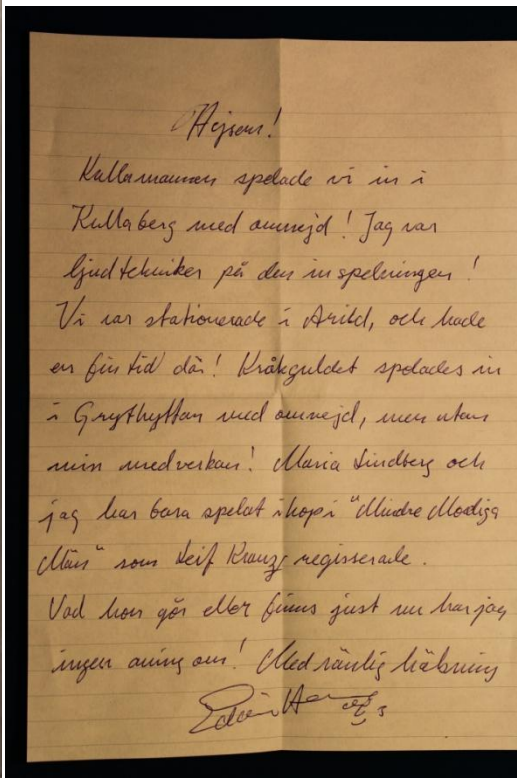 Hejsan!
Kullamannen spelade vi in i
Kullaberg med omnejd! Jag var
ljudtekniker på den inspelningen!
Vi var stationerade i Arild, och hade
en fin tid där! Kråkguldet spelades in
i Grythyttan med omnejd, men utan
min medverkan! Maria Lindberg och
jag har bara spelat ihop i "Mindre Modiga
Män" som Leif Krantz regisserade.
Vad hon gör eller finns just nu har jag
ingen aning om! Med vänlig hälsning